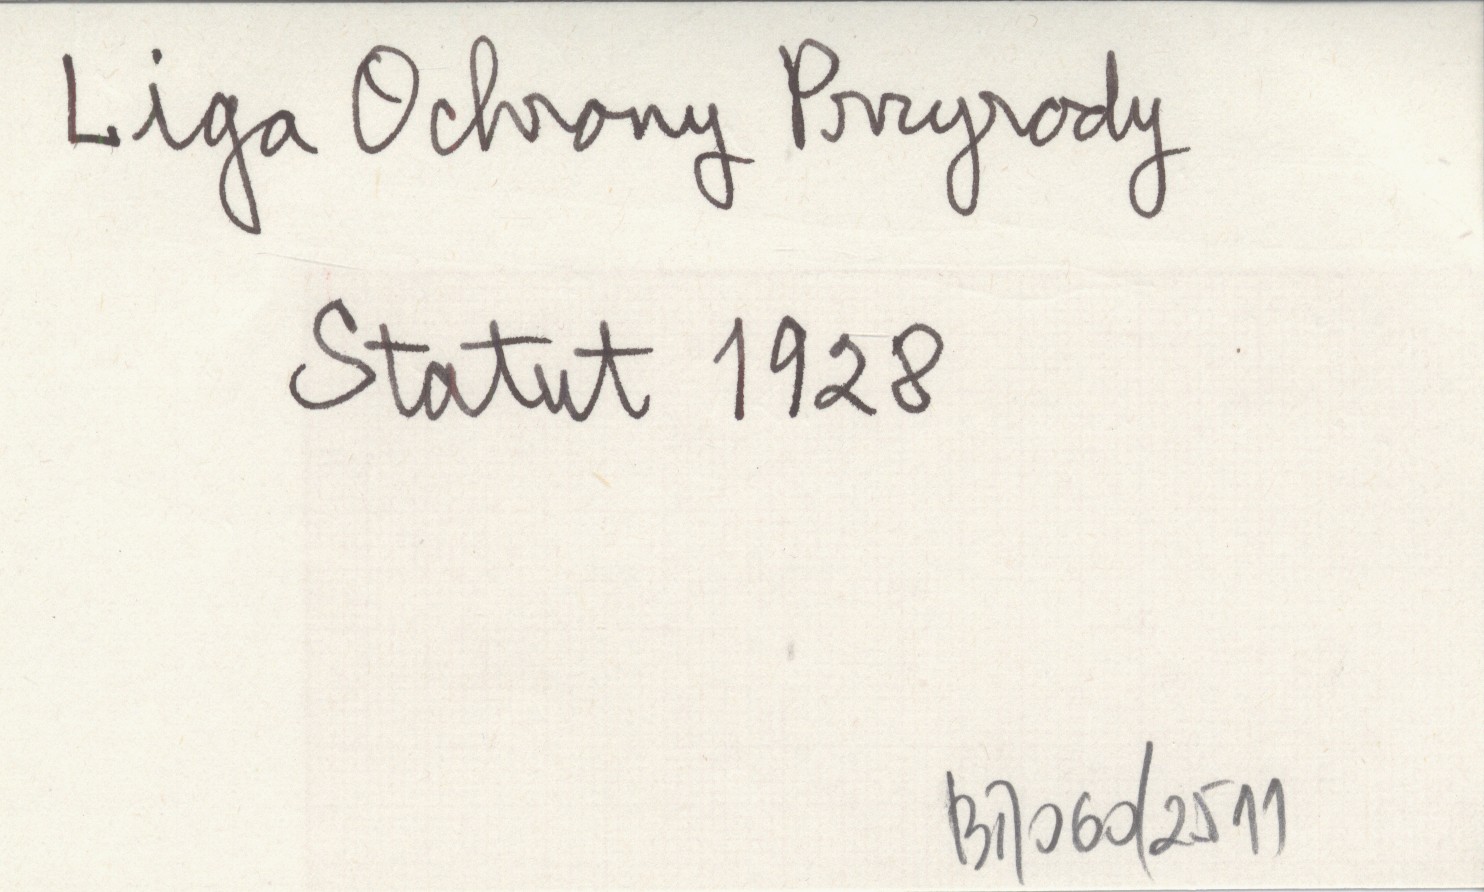 Liga Ochrony Przyrody
Statut 1928
BI/060/2511